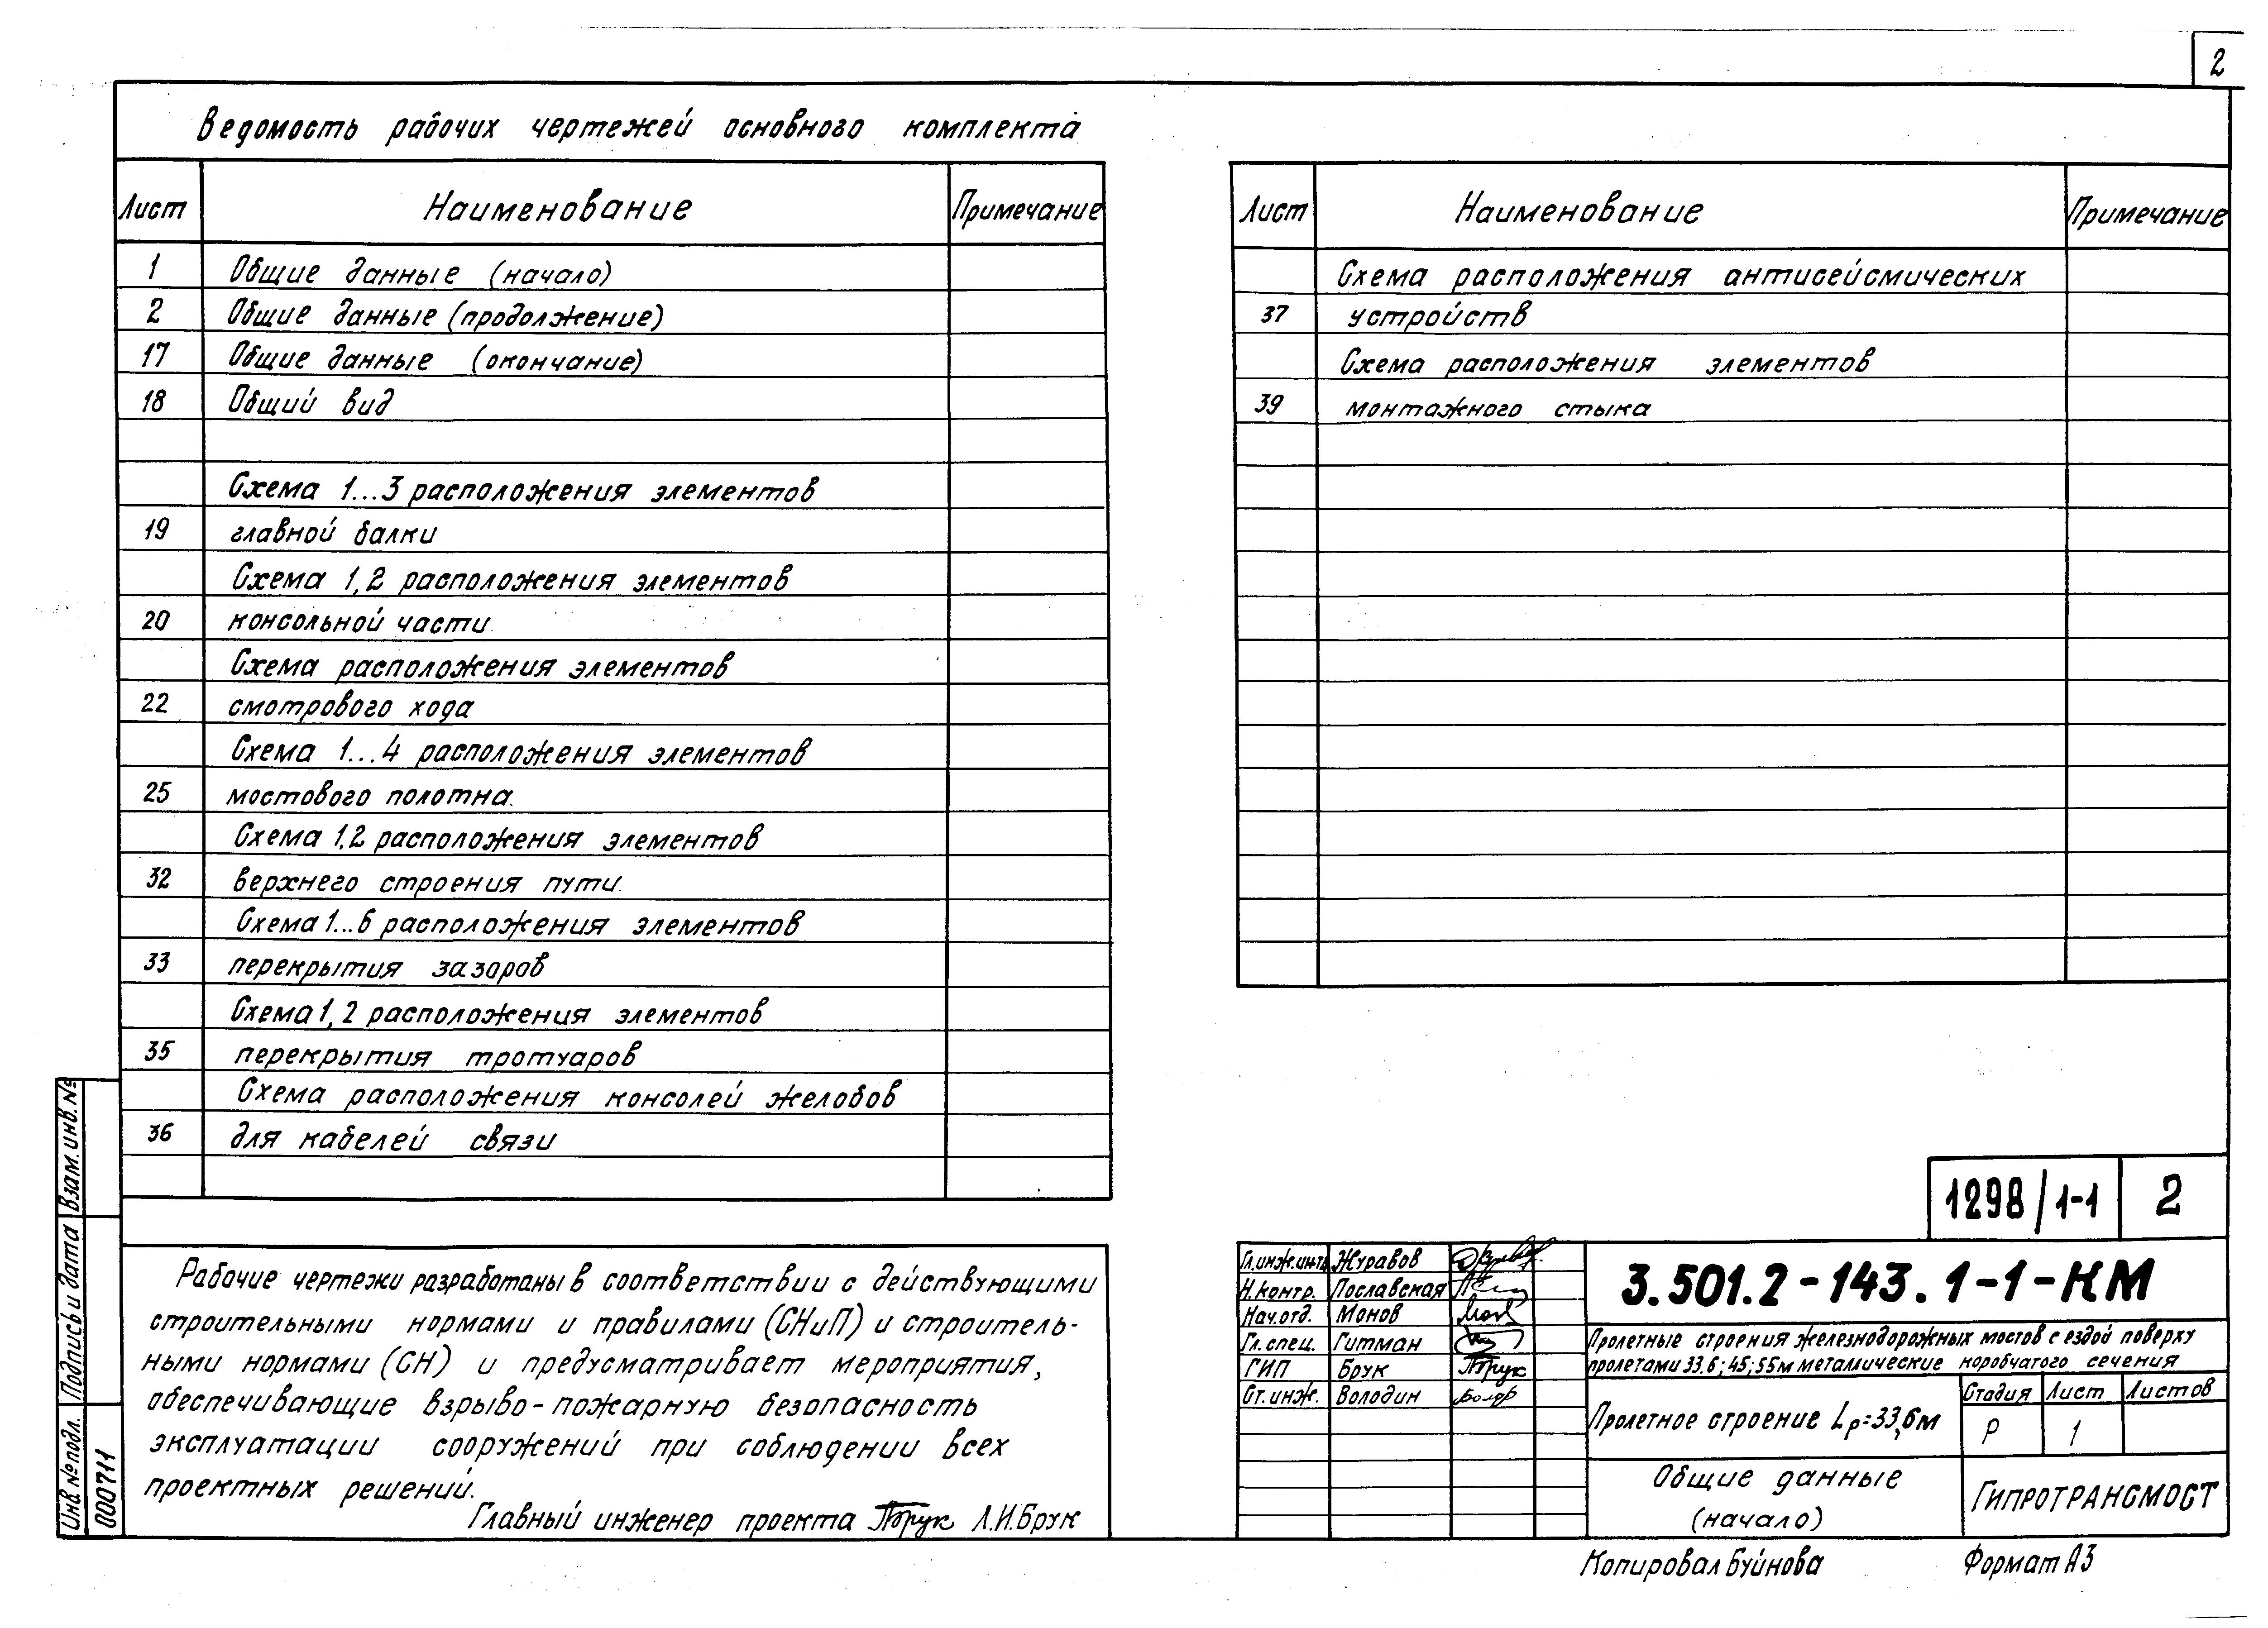 2
Ведомость рабочих чертежей основного комплекта
Лист Наименование Примечание
1 Общие данные (начало)
2 Общие данные (продолжение)
17 Общие данные (окончание)
18 Общий вид
Схема 1...3 расположения элементов
19 главной балки
Схема 1,2 расположения элементов
20 консольной части.
Схема расположения элементов
22 смотрового хода
Схема 1...4 расположения элементов
25 мостового полотна.
Схема 1,2 расположения элементов
32 верхнего строения пути.
Схема 1...6 расположения элементов
33 перекрытия зазоров
Схема 1,2 расположения элементов
35 перекрытия тротуаров
Схема расположения консолей желобов
36 для кабелей связи
Лист Наименование Примечание
Схема расположения антисейсмических
37 устройств
Схема расположения элементов
39 монтажного стыка
Рабочие чертежи разработаны в соответствии с действующими
строительными нормами и правилами (СНиП) и строитель-
ными нормами (СН) и предусматривает мероприятия,
обеспечивающие взрыво-пожарную безопасность
эксплуатации сооружений при соблюдении всех
проектных решений.
Главный инженер проекта Брук Л.И.Брук
Взам. инв. №
Подпись и дата
Инв. № подл.
000711
1298/1-1 2
Гл.инж.ин-та Журавов
Н.контр. Пославская
Нач.отд. Монов
Гл.спец. Гитман
ГИП Брук Брук
Ст.инж. Володин
3.501.2-143.1-1-КМ
Пролетные строения железнодорожных мостов с ездой поверху
пролетами 33.6; 45; 55м металлические коробчатого сечения
Пролетное строение Lр=33,6м
Стадия Лист Листов
Р 1
Общие данные
(начало)
ГИПРОТРАНСМОСТ
Копировал Буйнова Формат А3